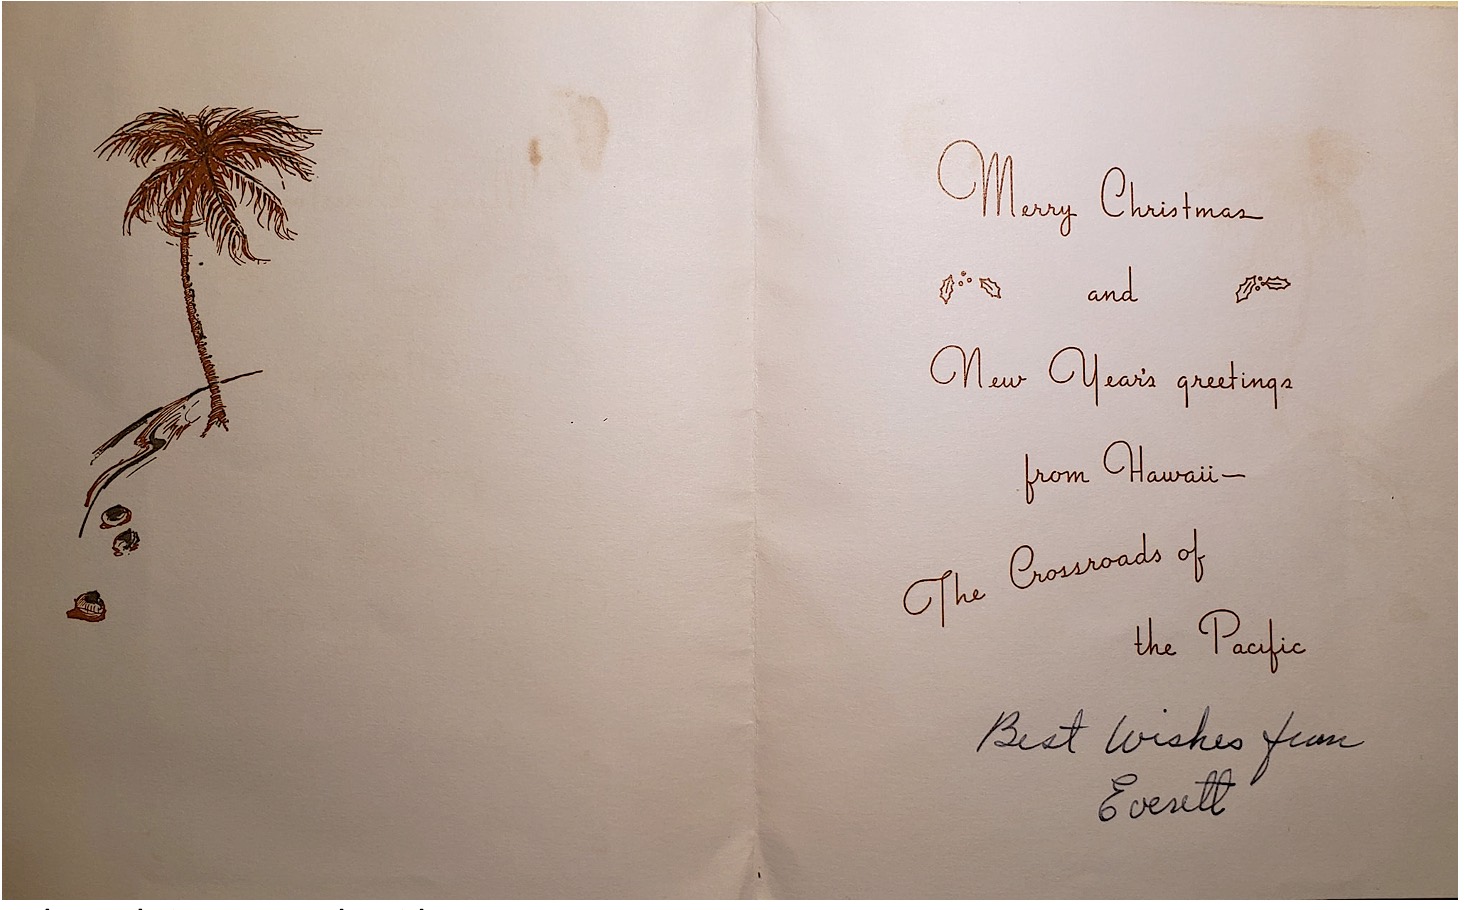 Merry Christmas
and
New Year's greetings
from Hawaii—
The Crossroads of
the Pacific
Best Wishes from
Everett